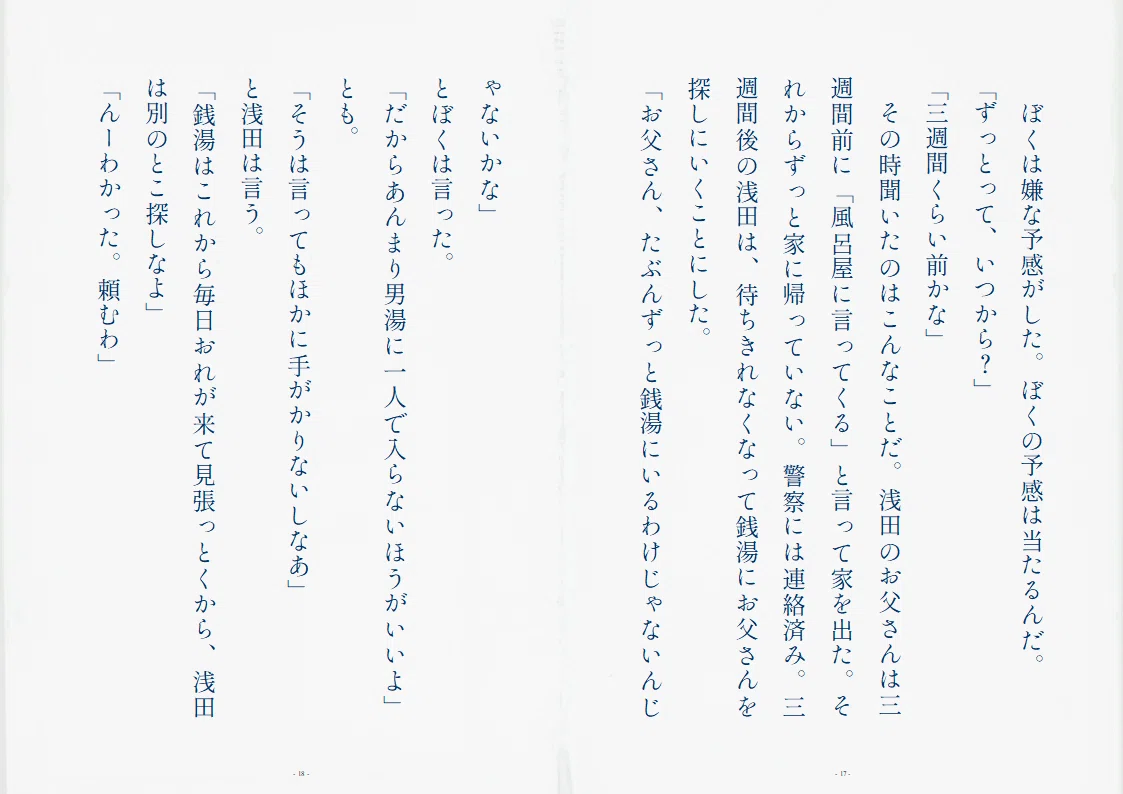 ぼくは嫌な予感がした。ぼくの予感は当たるんだ。
「ずっとって、いつから？」
「三週間くらい前かな」
その時聞いたのはこんなことだ。浅田のお父さんは三
週間前に「風呂屋に言ってくる」と言って家を出た。そ
れからずっと家に帰っていない。警察には連絡済み。三
週間後の浅田は、待ちきれなくなって銭湯にお父さんを
探しにいくことにした。
「お父さん、たぶんずっと銭湯にいるわけじゃないんじ
- 17 -
ゃないかな」
とぼくは言った。
「だからあんまり男湯に一人で入らないほうがいいよ」
とも。
「そうは言ってもほかに手がかりないしなあ」
と浅田は言う。
「銭湯はこれから毎日おれが来て見張っとくから、浅田
は別のとこ探しなよ」
「んーわかった。頼むわ」
- 18 -